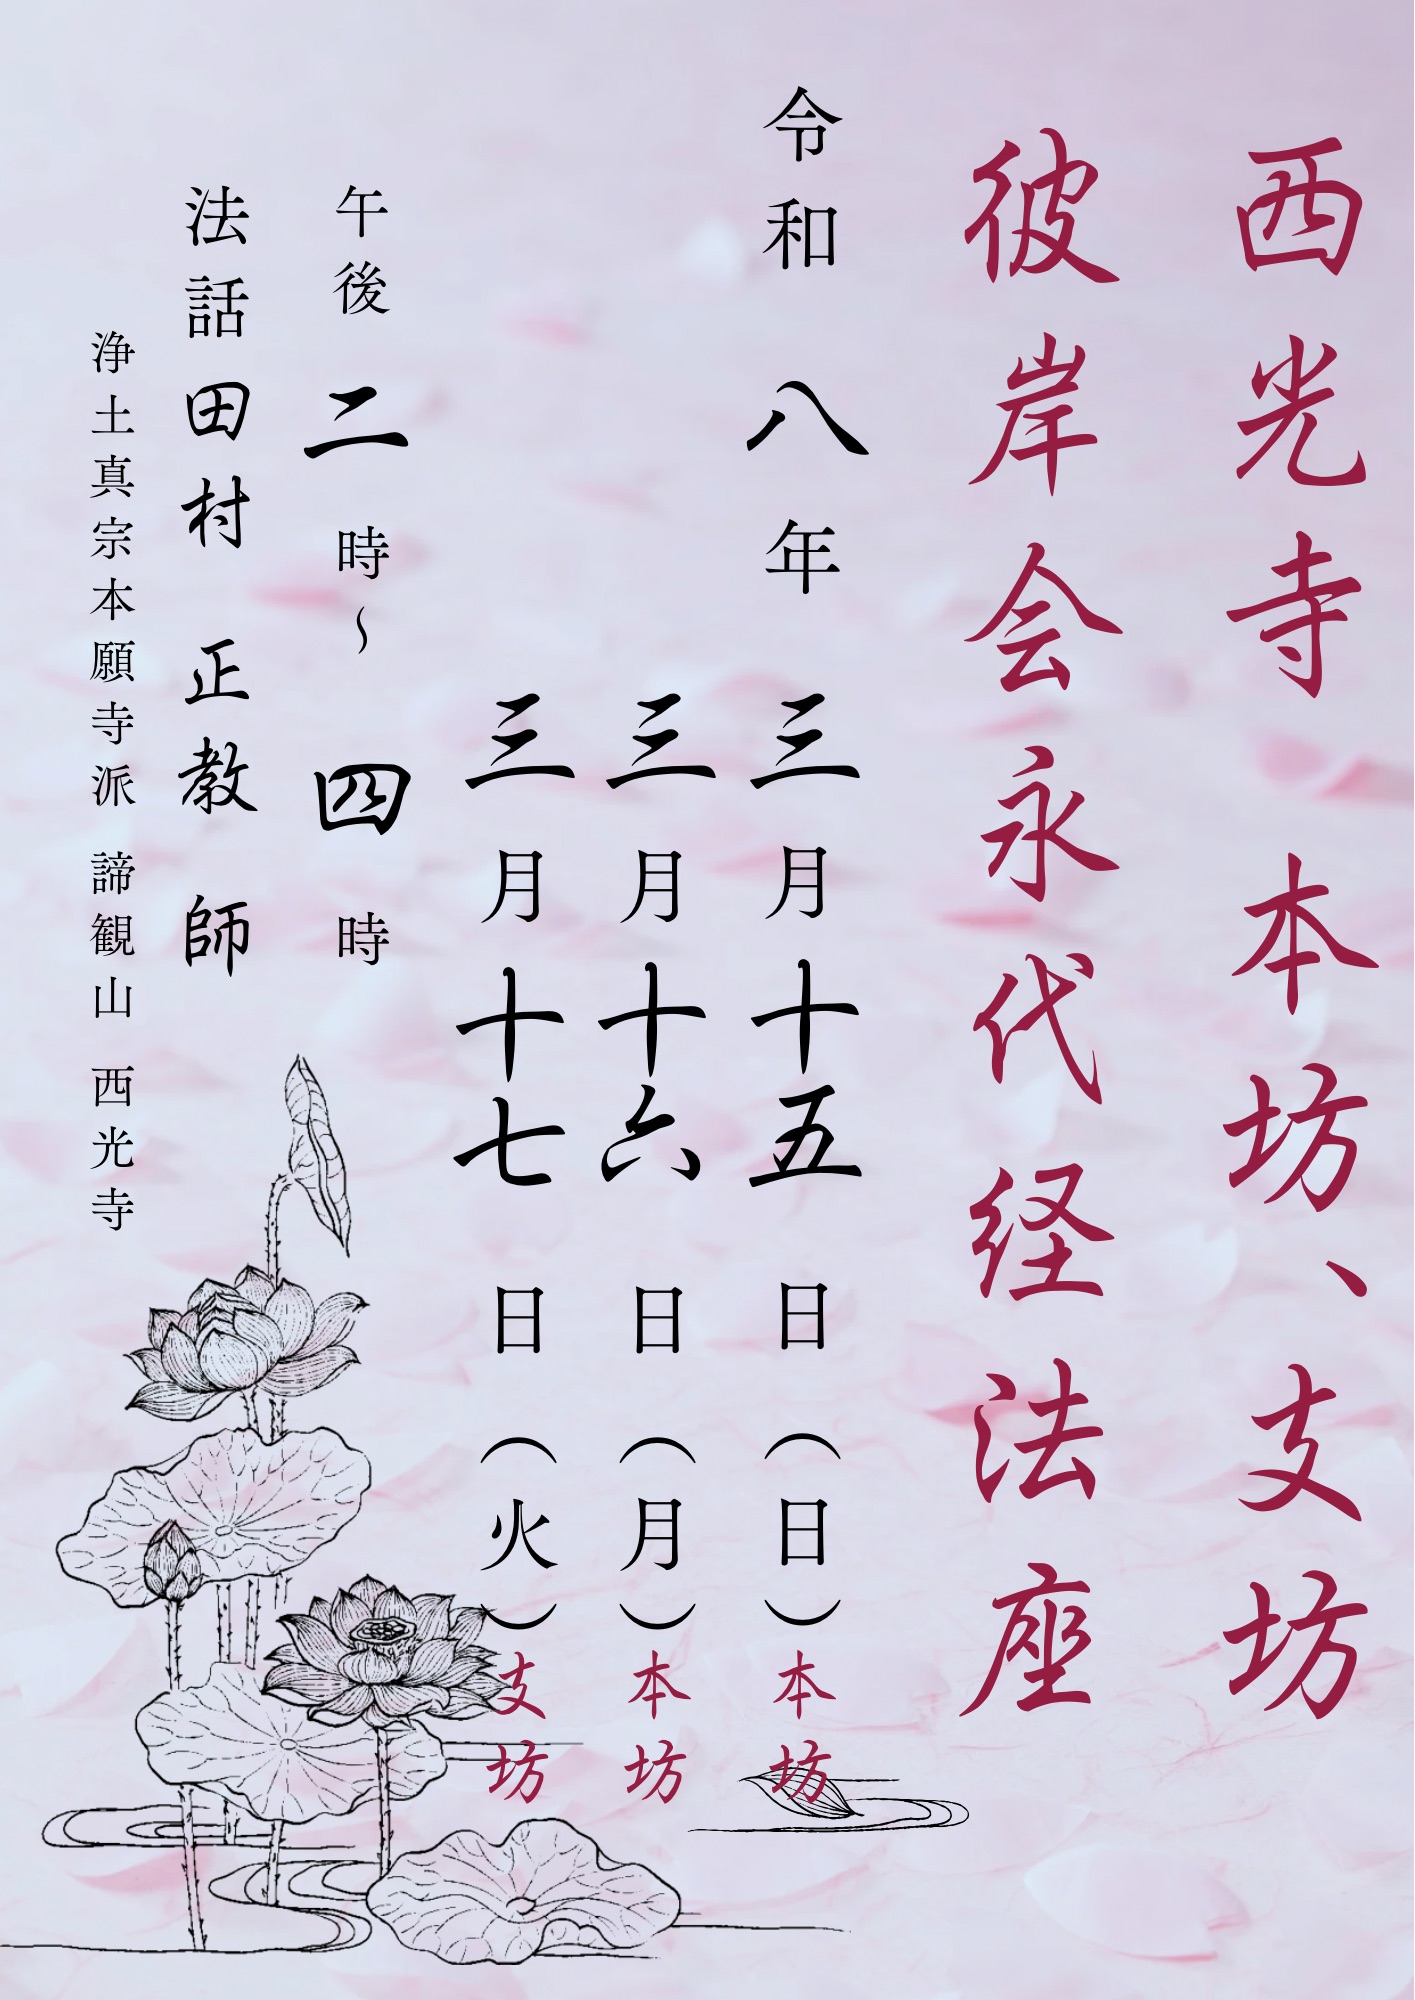 西光寺 本坊、支坊
彼岸会永代経法座
令和八年 三月十五日（日）本坊
三月十六日（月）本坊
三月十七日（火）支坊
午後二時～四時
法話 田村 正教 師
浄土真宗本願寺派 諦観山 西光寺